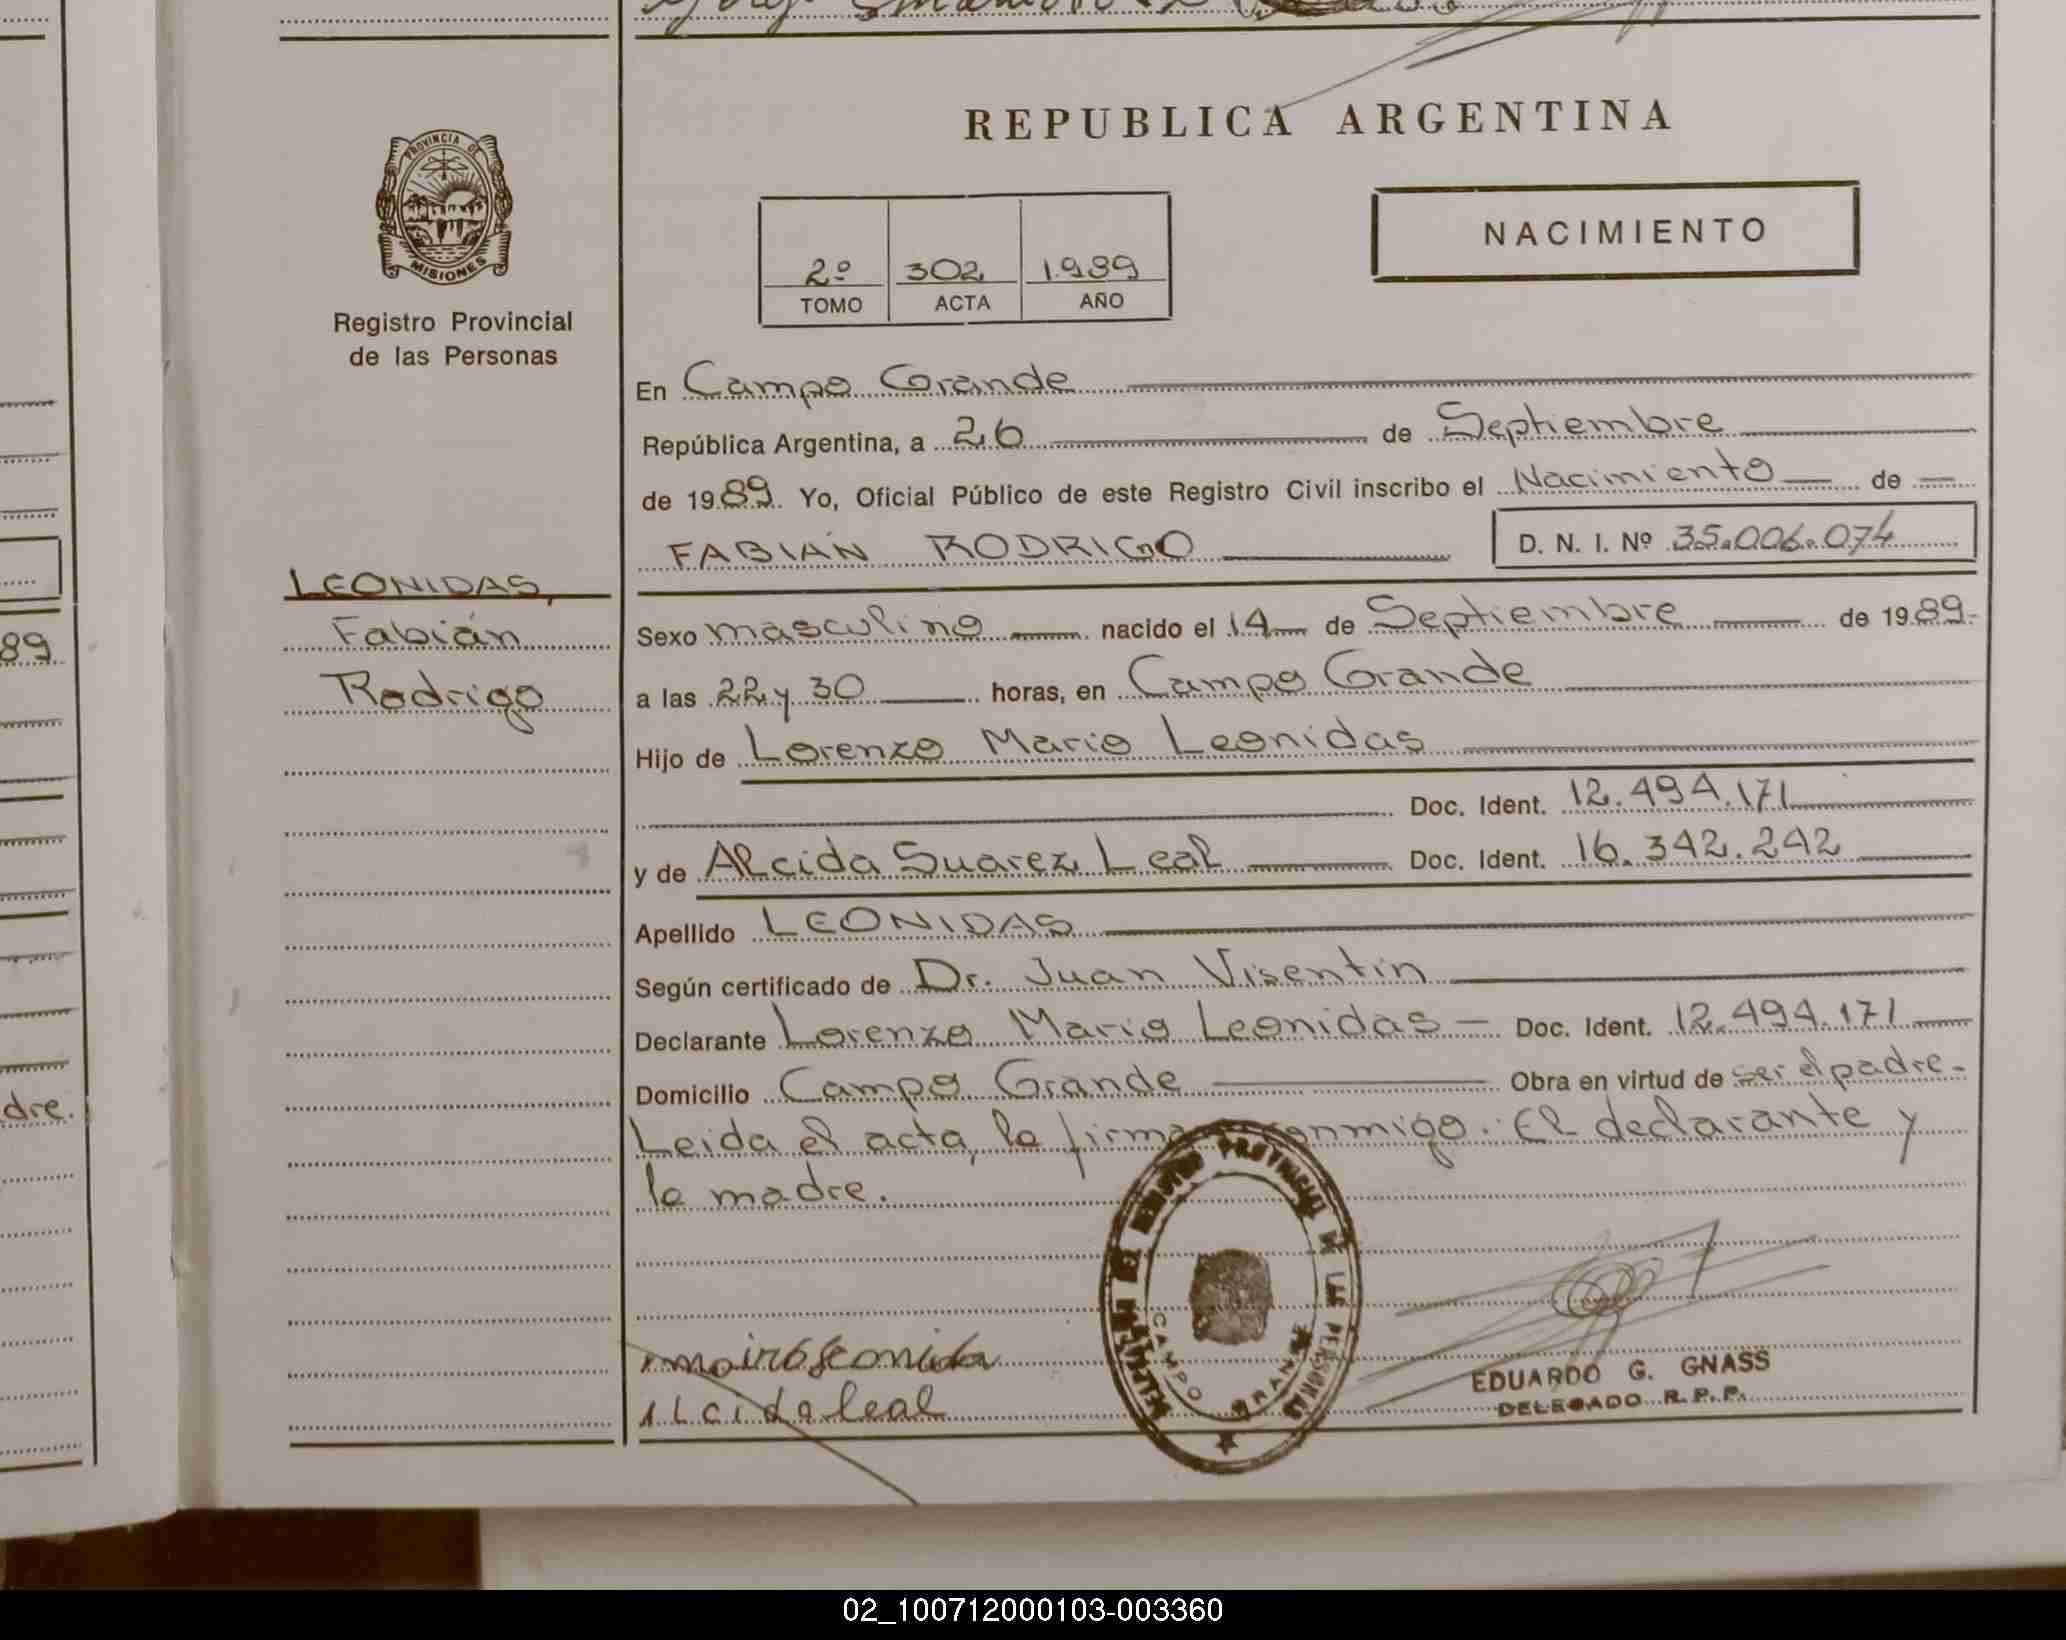 REPUBLICA ARGENTINA
PROVINCIA DE
MISIONES
Registro Provincial
de las Personas
2º 302 1989
TOMO ACTA AÑO
NACIMIENTO
En Campo Grande
República Argentina, a 26 de Septiembre
de 1989. Yo, Oficial Público de este Registro Civil inscribo el Nacimiento de
FABIÁN RODRIGO
D. N. I. Nº 35.006.074
LEONIDAS,
Fabián
Rodrigo
Sexo masculino nacido el 14 de Septiembre de 1989.
a las 22 y 30 horas, en Campo Grande
Hijo de Lorenzo Mario Leonidas
Doc. Ident. 12.494.171
y de Alcida Suarez Leal Doc. Ident. 16.342.242
Apellido LEONIDAS
Según certificado de Dr. Juan Visentín
Declarante Lorenzo Mario Leonidas — Doc. Ident. 12.494.171
Domicilio Campo Grande Obra en virtud de ser el padre.
Leida el acta, la firma conmigo. El declarante y
la madre.
DELEGACIÓN DEL REGISTRO PROVINCIAL DE LAS PERSONAS
CAMPO GRANDE
Alcida leal
EDUARDO G. GNASS
DELEGADO R.P.P.
89
dre.
02_100712000103-003360